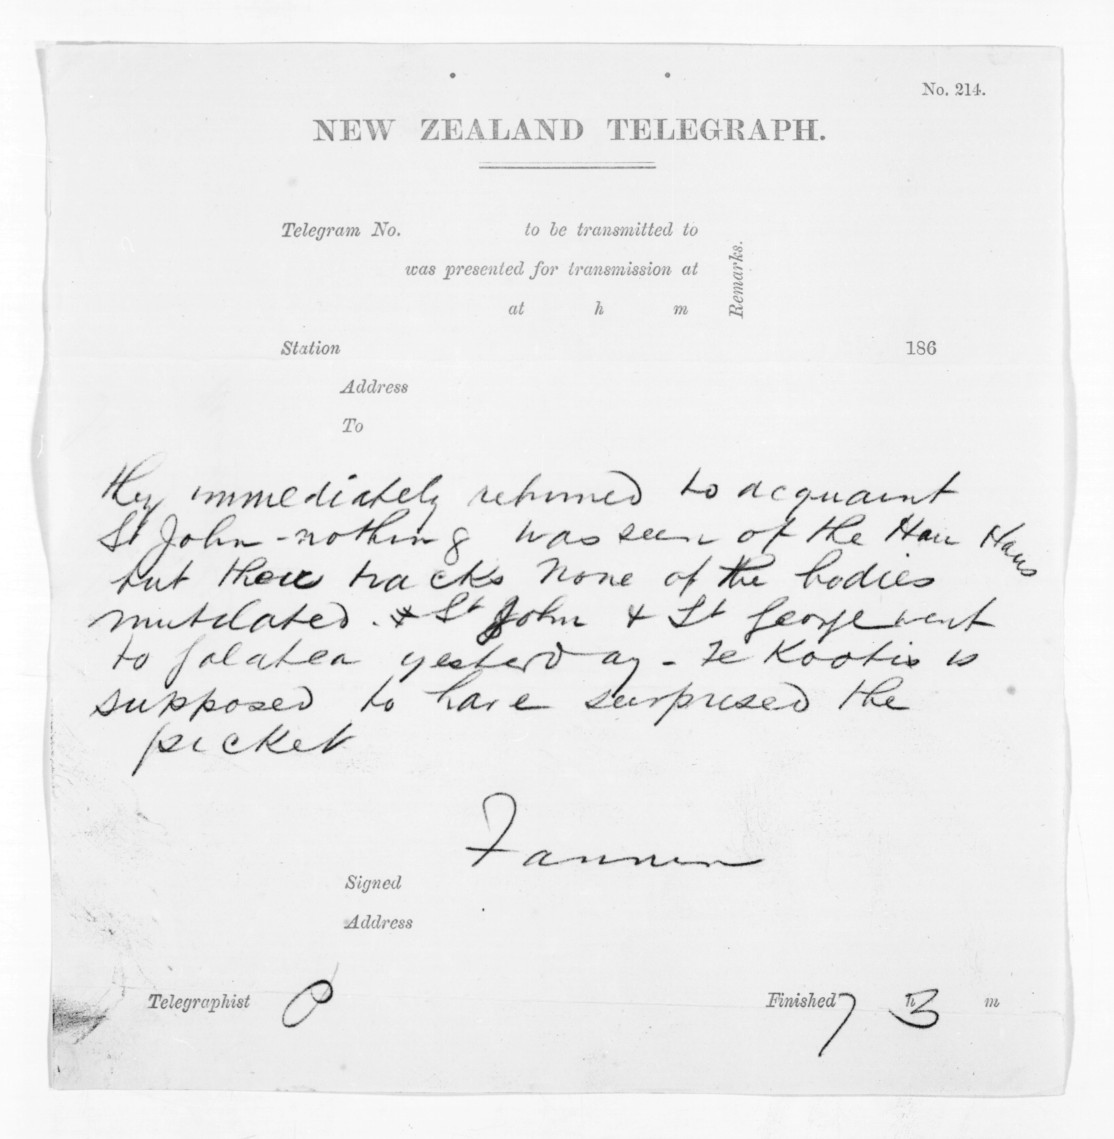 No. 214.
NEW ZEALAND TELEGRAPH.
Telegram No. to be transmitted to
was presented for transmission at
at h m
Remarks.
Station 186
Address
To
they immediately returned to acquaint
St John - nothing was seen of the Hau Haus
but their tracks None of the bodies
mutilated. & St John & St George went
to Galatea yesterday - Te Kooti is
supposed to have surprised the
picket
Fannin
Signed
Address
Telegraphist P Finished 7 h 3 m